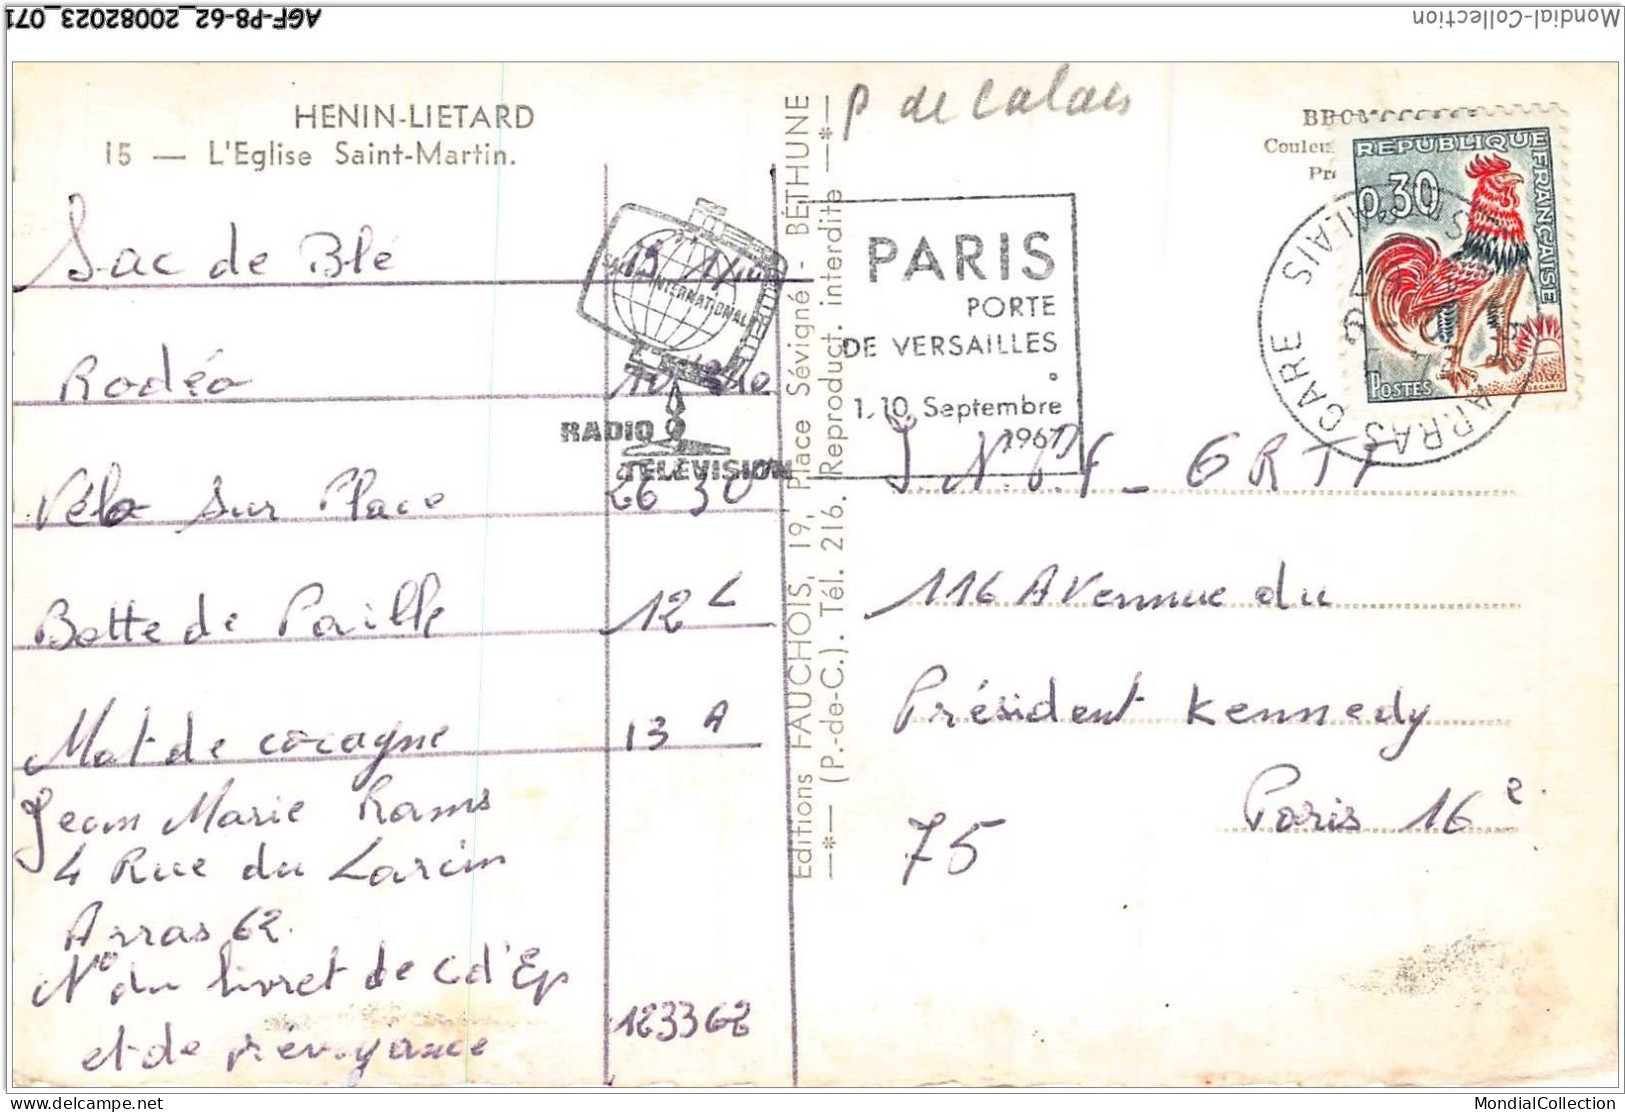 AGF-P8-62_20082023_071
Mondial-Collection
HENIN-LIETARD
15 — L'Eglise Saint-Martin.
P de Calais
Couleu
REPUBLIQUE FRANÇAISE
0,30
POSTES
DECARIS
ARRAS GARE
PAS DE CALAIS
INTERNATIONAL
RADIO
TELEVISION
PARIS
PORTE
DE VERSAILLES
1.10 Septembre
1967
Editions FAUCHOIS, 19, Place Sévigné - BÉTHUNE
—*— (P.-de-C.). Tél. 216. Reproduct. interdite —*—
Sac de Blé
Rodéo
Vélo sur Place 26 30
Botte de Paille 12 L
Mat de cocagne 13 A
Jean Marie Rams
4 Rue du Larcin
Arras 62.
N° du livret de C d'Ep
et de prévoyance 123362
116 Avennue du
Président Kennedy
Paris 16 e.
75
delcampe.net
MondialCollection